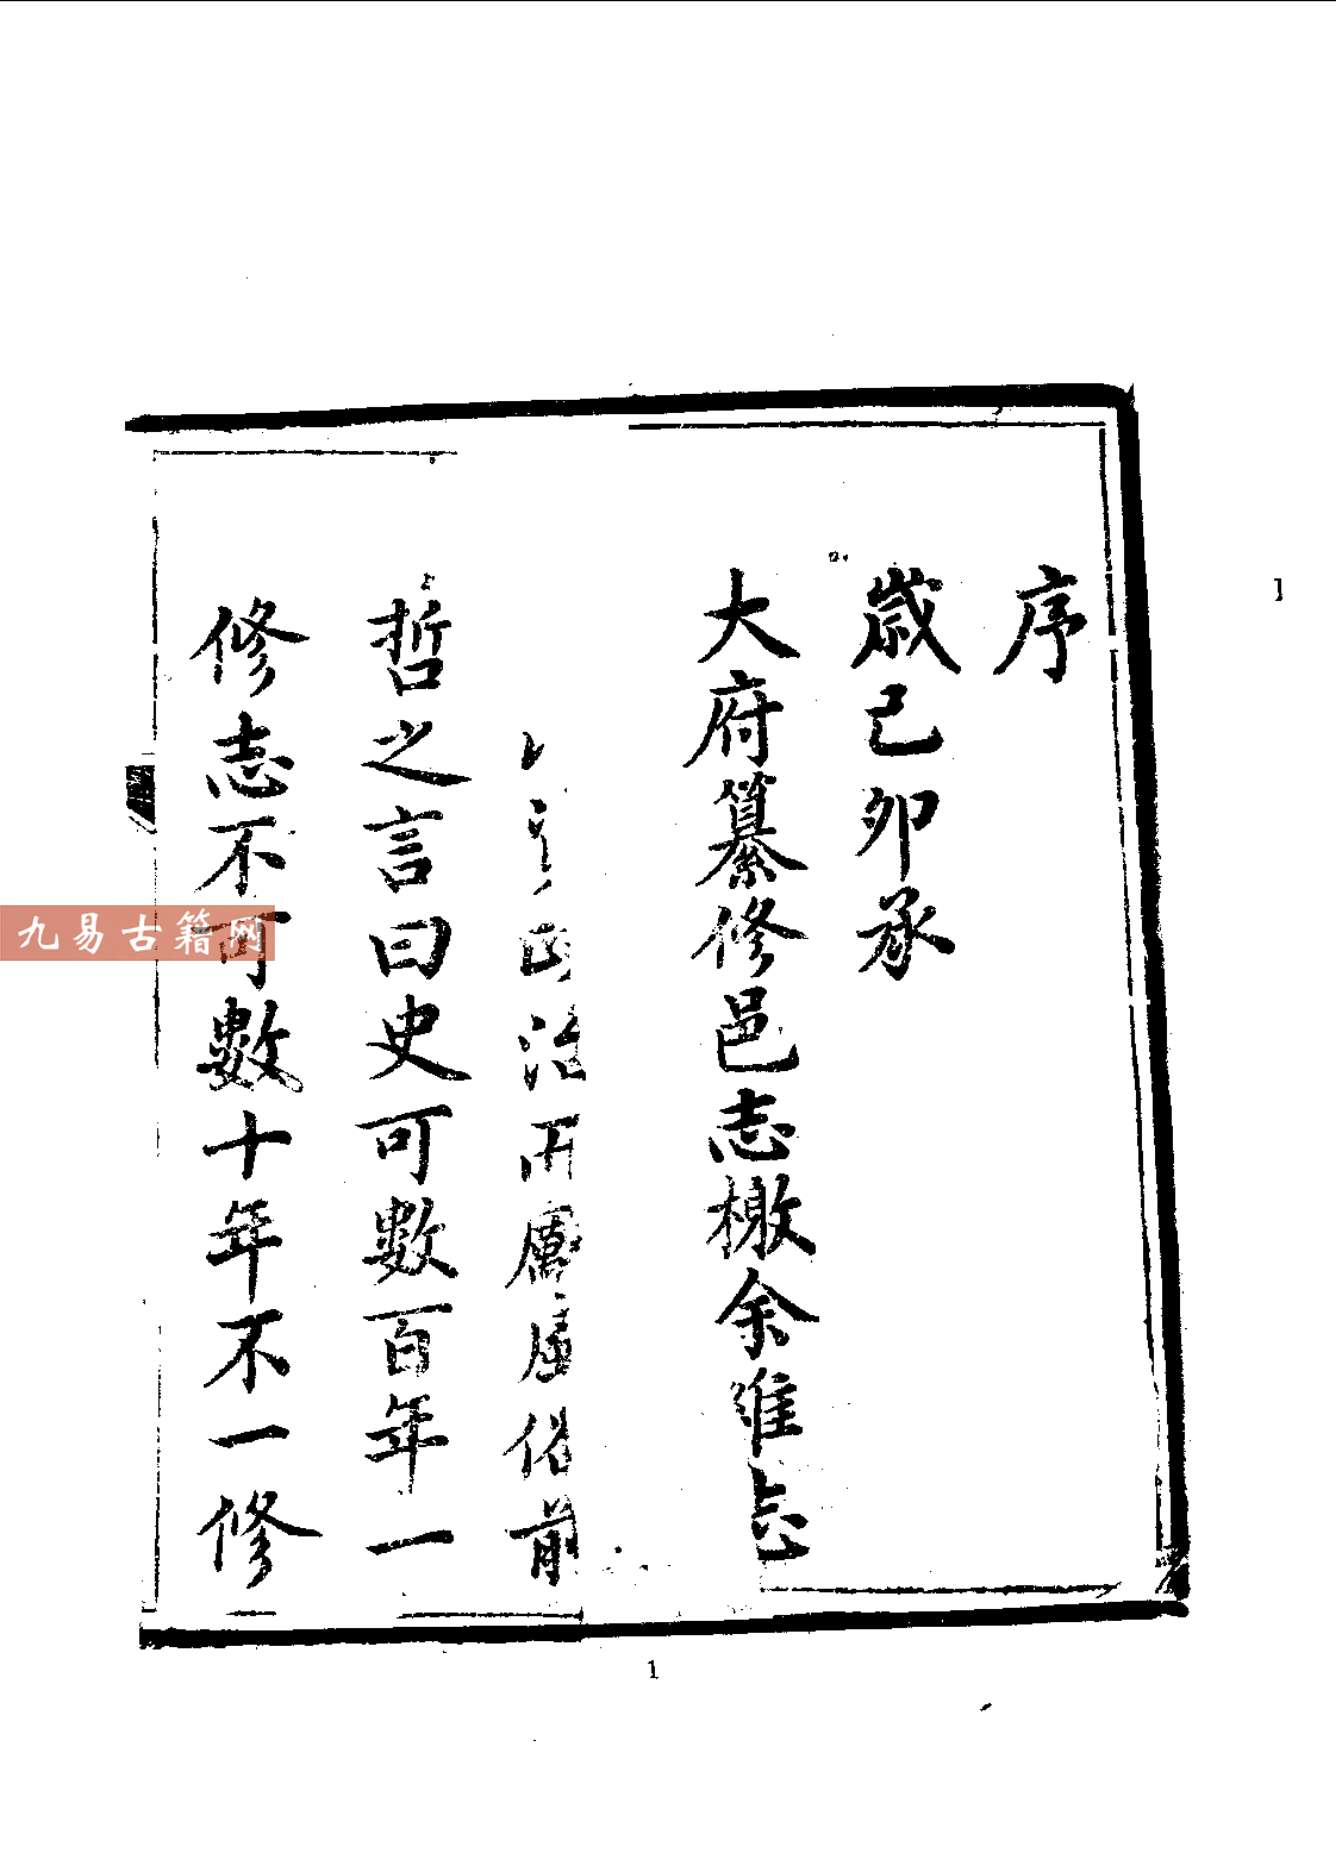 序
歲己卯承
大府纂修邑志檄余維志
治而廑風俗前
哲之言曰史可數百年一
修志不可數十年不一修
九易古籍网
1
1